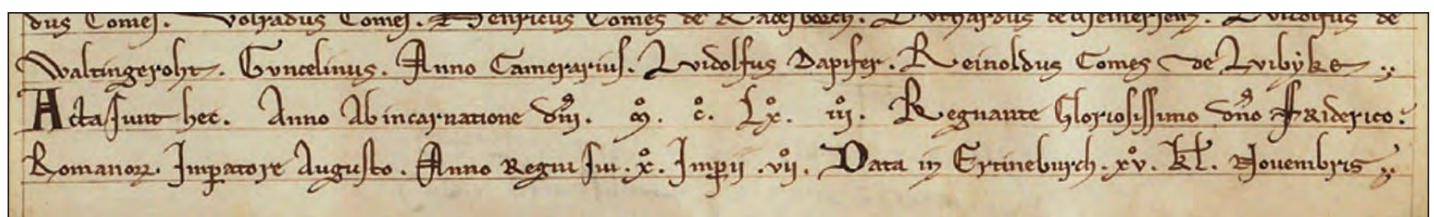 dus Comes. Volradus Comes. Henricus Comes de Racesborch. Luthardus de Meinersem. Luidolfus de
Waltingeroht. Guncelinus. Anno Camerarius. Luidolfus Dapifer. Reinoldus Comes de Luibyke.
Acta sunt hec. Anno Ab incarnatione dn̄i. m̊. c̊. Lx̊. iii̊. Regnante Gloriosissimo dn̄o Friderico.
Romanoꝝ Imꝑatore Augusto. Anno Regni sui .x. Imꝑii .vii. Data in Ertineburch .xv. kl. Novembris